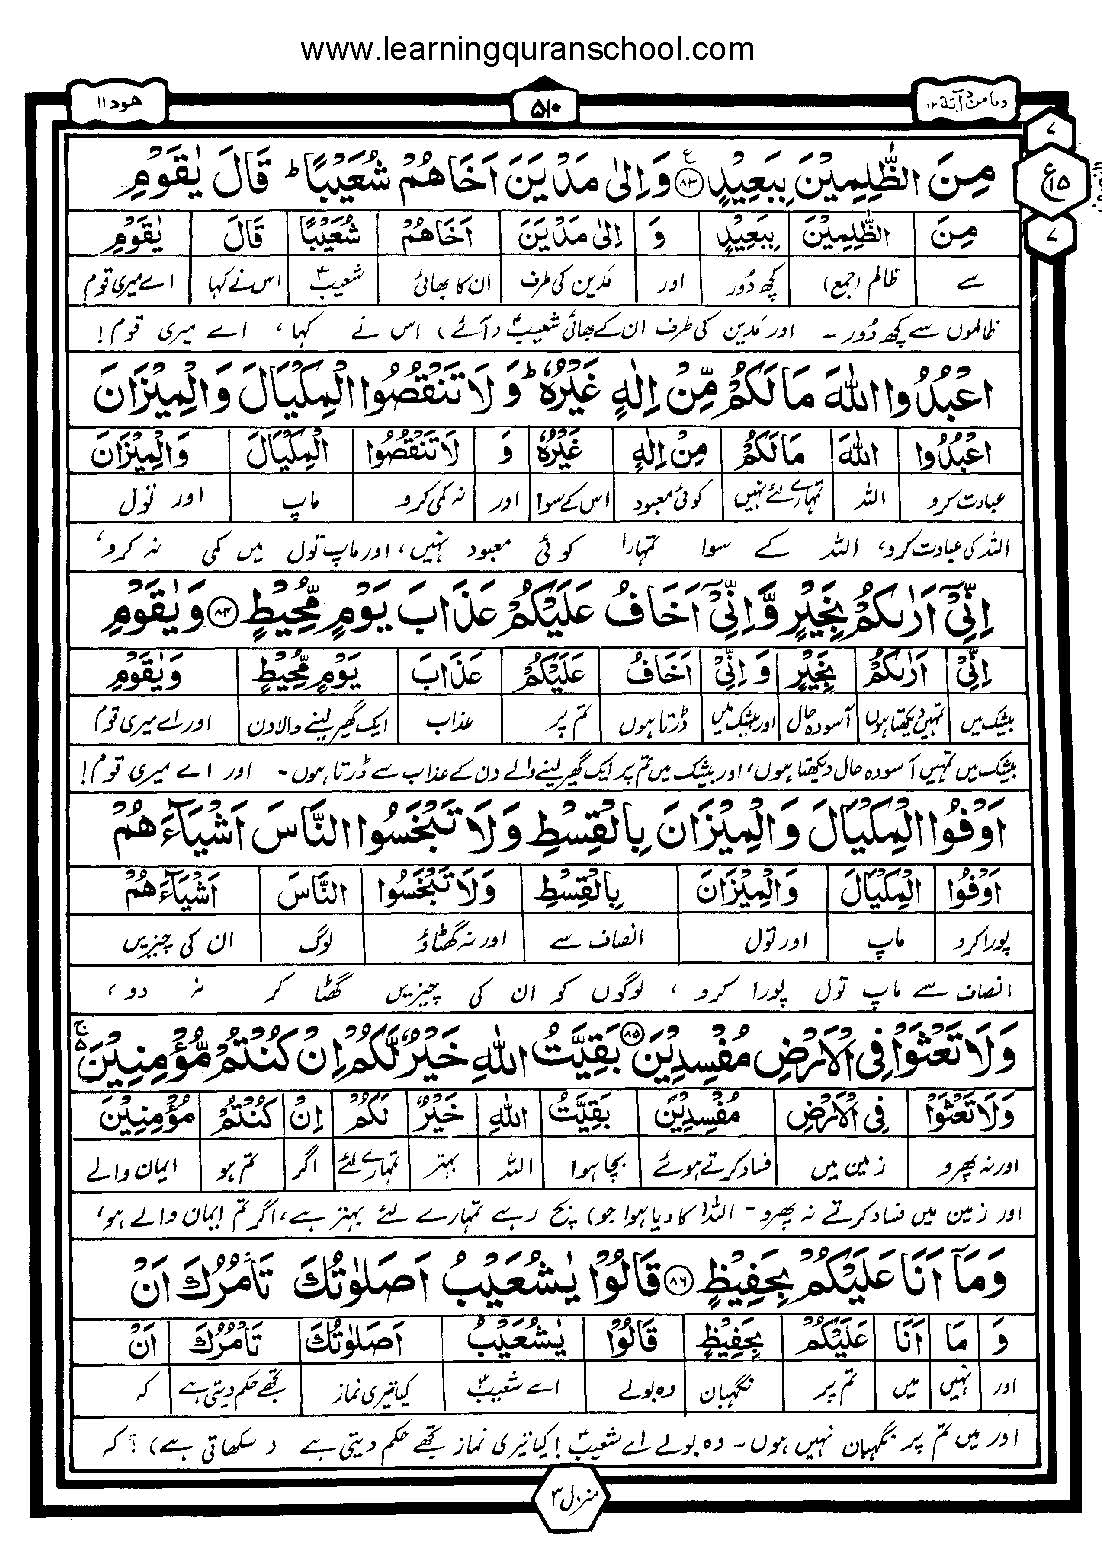 www.learningquranschool.com
ومامن دآبة ۱۲ ۵۱۰ هود ۱۱
مِنَ الظّٰلِمِيْنَ بِبَعِيْدٍ ۸۳ ع وَاِلٰى مَدْيَنَ اَخَاهُمْ شُعَيْبًا ؕ قَالَ يٰقَوْمِ
مِنَ الظّٰلِمِيْنَ بِبَعِيْدٍ وَ اِلٰى مَدْيَنَ اَخَاهُمْ شُعَيْبًا قَالَ يٰقَوْمِ
سے ظالم (جمع) کچھ دُور اور مَدین کی طرف ان کا بھائی شعیبؑ اس نے کہا اے میری قوم
ظالموں سے کچھ دُور۔ اور مَدین کی طرف ان کے بھائی شعیبؑ (آئے) اس نے کہا، اے میری قوم!
اعْبُدُوا اللّٰهَ مَا لَكُمْ مِّنْ اِلٰهٍ غَيْرُهٗ ؕ وَ لَا تَنْقُصُوا الْمِكْيَالَ وَالْمِيْزَانَ
اعْبُدُوا اللّٰهَ مَا لَكُمْ مِنْ اِلٰهٍ غَيْرُهٗ وَ لَا تَنْقُصُوا الْمِكْيَالَ وَالْمِيْزَانَ
عبادت کرو اللہ تمہارے لئے نہیں کوئی معبود اس کے سوا اور نہ کمی کرو ماپ اور تول
اللہ کی عبادت کرو، اللہ کے سوا تمہارا کوئی معبود نہیں، اور ماپ تول میں کمی نہ کرو،
اِنِّيْٓ اَرٰىكُمْ بِخَيْرٍ وَّ اِنِّيْٓ اَخَافُ عَلَيْكُمْ عَذَابَ يَوْمٍ مُّحِيْطٍ ۸۴ وَيٰقَوْمِ
اِنِّيْ اَرٰىكُمْ بِخَيْرٍ وَ اِنِّيْ اَخَافُ عَلَيْكُمْ عَذَابَ يَوْمٍ مُّحِيْطٍ وَيٰقَوْمِ
بیشک میں تمہیں دیکھتا ہوں آسودہ حال اور بیشک میں ڈرتا ہوں تم پر عذاب ایک گھیر لینے والا دن اور اے میری قوم
بیشک میں تمہیں آسودہ حال دیکھتا ہوں، اور بیشک میں تم پر ایک گھیر لینے والے دن کے عذاب سے ڈرتا ہوں۔ اور اے میری قوم!
اَوْفُوا الْمِكْيَالَ وَالْمِيْزَانَ بِالْقِسْطِ وَلَا تَبْخَسُوا النَّاسَ اَشْيَآءَهُمْ
اَوْفُوا الْمِكْيَالَ وَالْمِيْزَانَ بِالْقِسْطِ وَلَا تَبْخَسُوا النَّاسَ اَشْيَآءَهُمْ
پورا کرو ماپ اور تول انصاف سے اور نہ گھٹاؤ لوگ ان کی چیزیں
انصاف سے ماپ تول پورا کرو، لوگوں کو ان کی چیزیں گھٹا کر نہ دو،
وَلَا تَعْثَوْا فِي الْاَرْضِ مُفْسِدِيْنَ ۸۵ بَقِيَّتُ اللّٰهِ خَيْرٌ لَّكُمْ اِنْ كُنْتُمْ مُّؤْمِنِيْنَ
وَلَا تَعْثَوْا فِي الْاَرْضِ مُفْسِدِيْنَ بَقِيَّتُ اللّٰهِ خَيْرٌ لَكُمْ اِنْ كُنْتُمْ مُؤْمِنِيْنَ
اور نہ پھرو زمین میں فساد کرتے ہوئے بچا ہوا اللہ بہتر تمہارے لئے اگر تم ہو ایمان والے
اور زمین میں فساد کرتے نہ پھرو۔ اللہ (کا دیا ہوا جو) بچ رہے تمہارے لئے بہتر ہے، اگر تم ایمان والے ہو،
وَمَآ اَنَا عَلَيْكُمْ بِحَفِيْظٍ ۸۶ قَالُوْا يٰشُعَيْبُ اَصَلٰوتُكَ تَاْمُرُكَ اَنْ
وَ مَا اَنَا عَلَيْكُمْ بِحَفِيْظٍ قَالُوْا يٰشُعَيْبُ اَصَلٰوتُكَ تَاْمُرُكَ اَنْ
اور نہیں میں تم پر نگہبان وہ بولے اے شعیبؑ کیا تیری نماز تجھے حکم دیتی ہے کہ
اور میں تم پر نگہبان نہیں ہوں۔ وہ بولے اے شعیبؑ! کیا تیری نماز تجھے حکم دیتی ہے (سکھاتی ہے)؟ کہ
منزل ۳
۷
ع ۱۵
۷